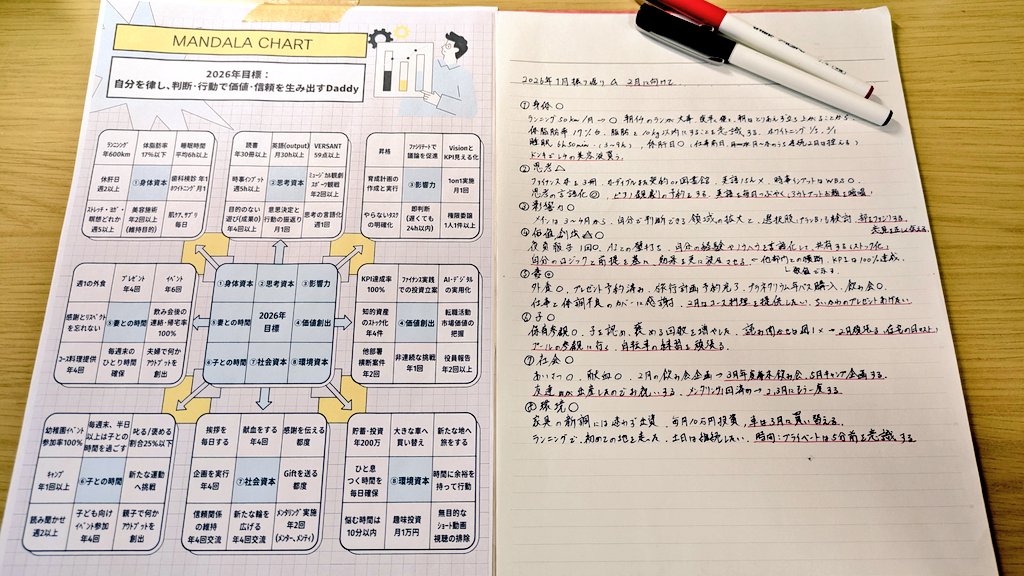 MANDALA CHART
2026年目標：
自分を律し、判断・行動で価値・信頼を生み出すDaddy
ランニング 年600km
体脂肪率 17%以下
睡眠時間 平均6h以上
休肝日 週2以上
①身体資本
歯科検診 年1 ホワイトニング 月1
ストレッチ・ヨガ・瞑想どれか 週5以上
美容施術 年2回以上 (維持目的)
肌ケア、サプリ 毎日
読書 年30冊以上
英語(output) 月30h以上
VERSANT 59点以上
時事インプット 週5h以上
②思考資本
ミュージカル観劇 スポーツ観戦 年2回以上
目的のない 遊び(成果0) 年4回以上
意思決定と 行動の振返り 月1回
思考の言語化 週1回
昇格
ファシリテートで 議論を促進
Visionと KPI見える化
育成計画の 作成と実行
③影響力
1on1実施 月1回
やらないタスク の明確化
即判断 (遅くても 24h以内)
権限委譲 1人1件以上
週1の外食
プレゼント 年4回
イベント 年6回
感謝とリスペクト を忘れない
⑤妻との時間
飲み会後の 連絡・帰宅率 100%
コース料理提供 年4回
毎週末の ひとり時間 確保
夫婦で何か アウトプットを 創出
①身体資本
②思考資本
③影響力
⑤妻との時間
2026年 目標
④価値創出
⑥子との時間
⑦社会資本
⑧環境資本
KPI達成率 100%
ファイナンス実践 での投資立案
AI・デジタル の実用化
知的資産 のストック化 年4件
④価値創出
転職活動 市場価値の 把握
他部署 横断案件 年2回
非連続な挑戦 年1回
役員報告 年2回以上
幼稚園イベント 参加率100%
毎週末、半日 以上は子との 時間を過ごす
叱る/褒める 割合25%以下
キャンプ 年1回以上
⑥子との時間
新たな運動 へ挑戦
読み聞かせ 週2以上
子ども向け イベント参加 年4回
親子で何か アウトプットを 創出
挨拶を 毎日する
献血をする 年4回
感謝を伝える 都度
企画を実行 年4回
⑦社会資本
Giftを送る 都度
信頼関係 の維持 年4回交流
新たな輪を 広げる 年4回交流
メンタリング実施 年2回 (メンター、メンティ)
貯蓄・投資 年200万
大きな車へ 買い替え
新たな地へ 旅をする
ひと息 つく時間を 毎日確保
⑧環境資本
時間に余裕を 持って行動
悩む時間は 10分以内
趣味投資 月1万円
無目的な ショート動画 視聴の排除
2026年1月振り返り & 2月に向けて
①身体○
ランニング50km/月→○ 朝行のランが大事
体脂肪率17%台、脂肪を10kg以内にすることを意識する。ホワイトニング
睡眠6h30min
②思考△
思考の言語化◎
③影響力○
メインは3〜4月から。自分で判断できる領域の拡大と、選択肢
④価値創出
自分の経験やノウハウを言語化して共有する(ストック化)
自分のロジックと前提を基に、効果を更に波及させる
⑤妻◎
外食○、プレゼント予約済み、旅行計画予約完了、プラネタリウム年パス購入、飲み会○
仕事と体調不良のカバーに感謝。2月はコース料理を提供したい。ちいかわのプレゼントあげたい
⑥子○
保育参観○、子を認め、褒める回数を増やした。
プールの参観に行く。自転車の練習を頑張る。
⑦社会○
あいさつ○、献血○、2月の飲み会企画→3月年度幕末飲み会、5月キャンプ企画する。
友達が出産したのでお祝いする。メンタリング1回済み→2,3月にもう一度する
⑧環境○
家具の新調には迷わず出資、毎月10万円投資、車は3月に買い替える。
ランニングで初めての地を走った、土日は継続したい。時間：プライベートは5分前を意識する